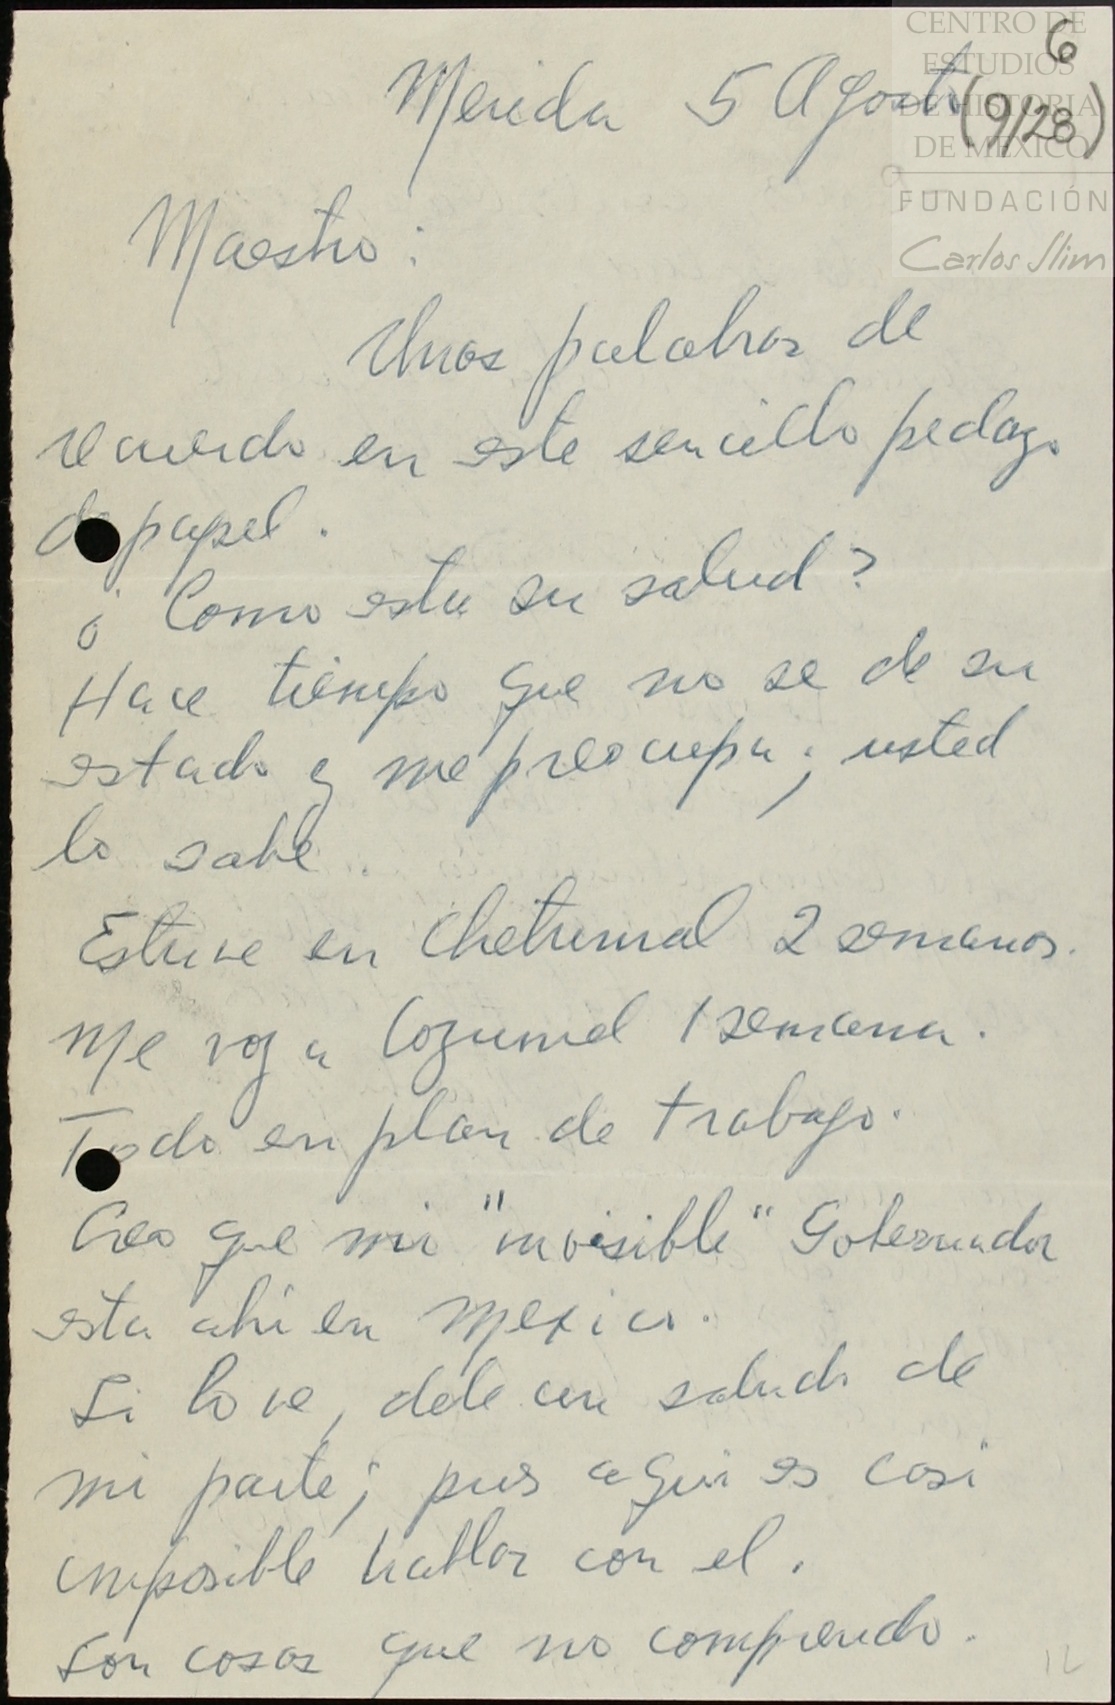 CENTRO DE
ESTUDIOS
DE HISTORIA
DE MEXICO
FUNDACIÓN
Carlos Slim
6
(9/28)
Merida 5 Agosto
Maestro:
Unas palabras de
recuerdo en este sencillo pedazo
de papel.
¿Como esta su salud?
Hace tiempo que no se de su
estado y me preocupa; usted
lo sabe.
Estuve en Chetumal 2 semanas.
Me voy a Cozumel 1 semana.
Todo en plan de trabajo.
Creo que mi "invisible" Gobernador
esta ahi en Mexico.
Si lo ve, dele un saludo de
mi parte; pues aqui es casi
imposible hablar con el.
Son cosas que no comprendo.
12